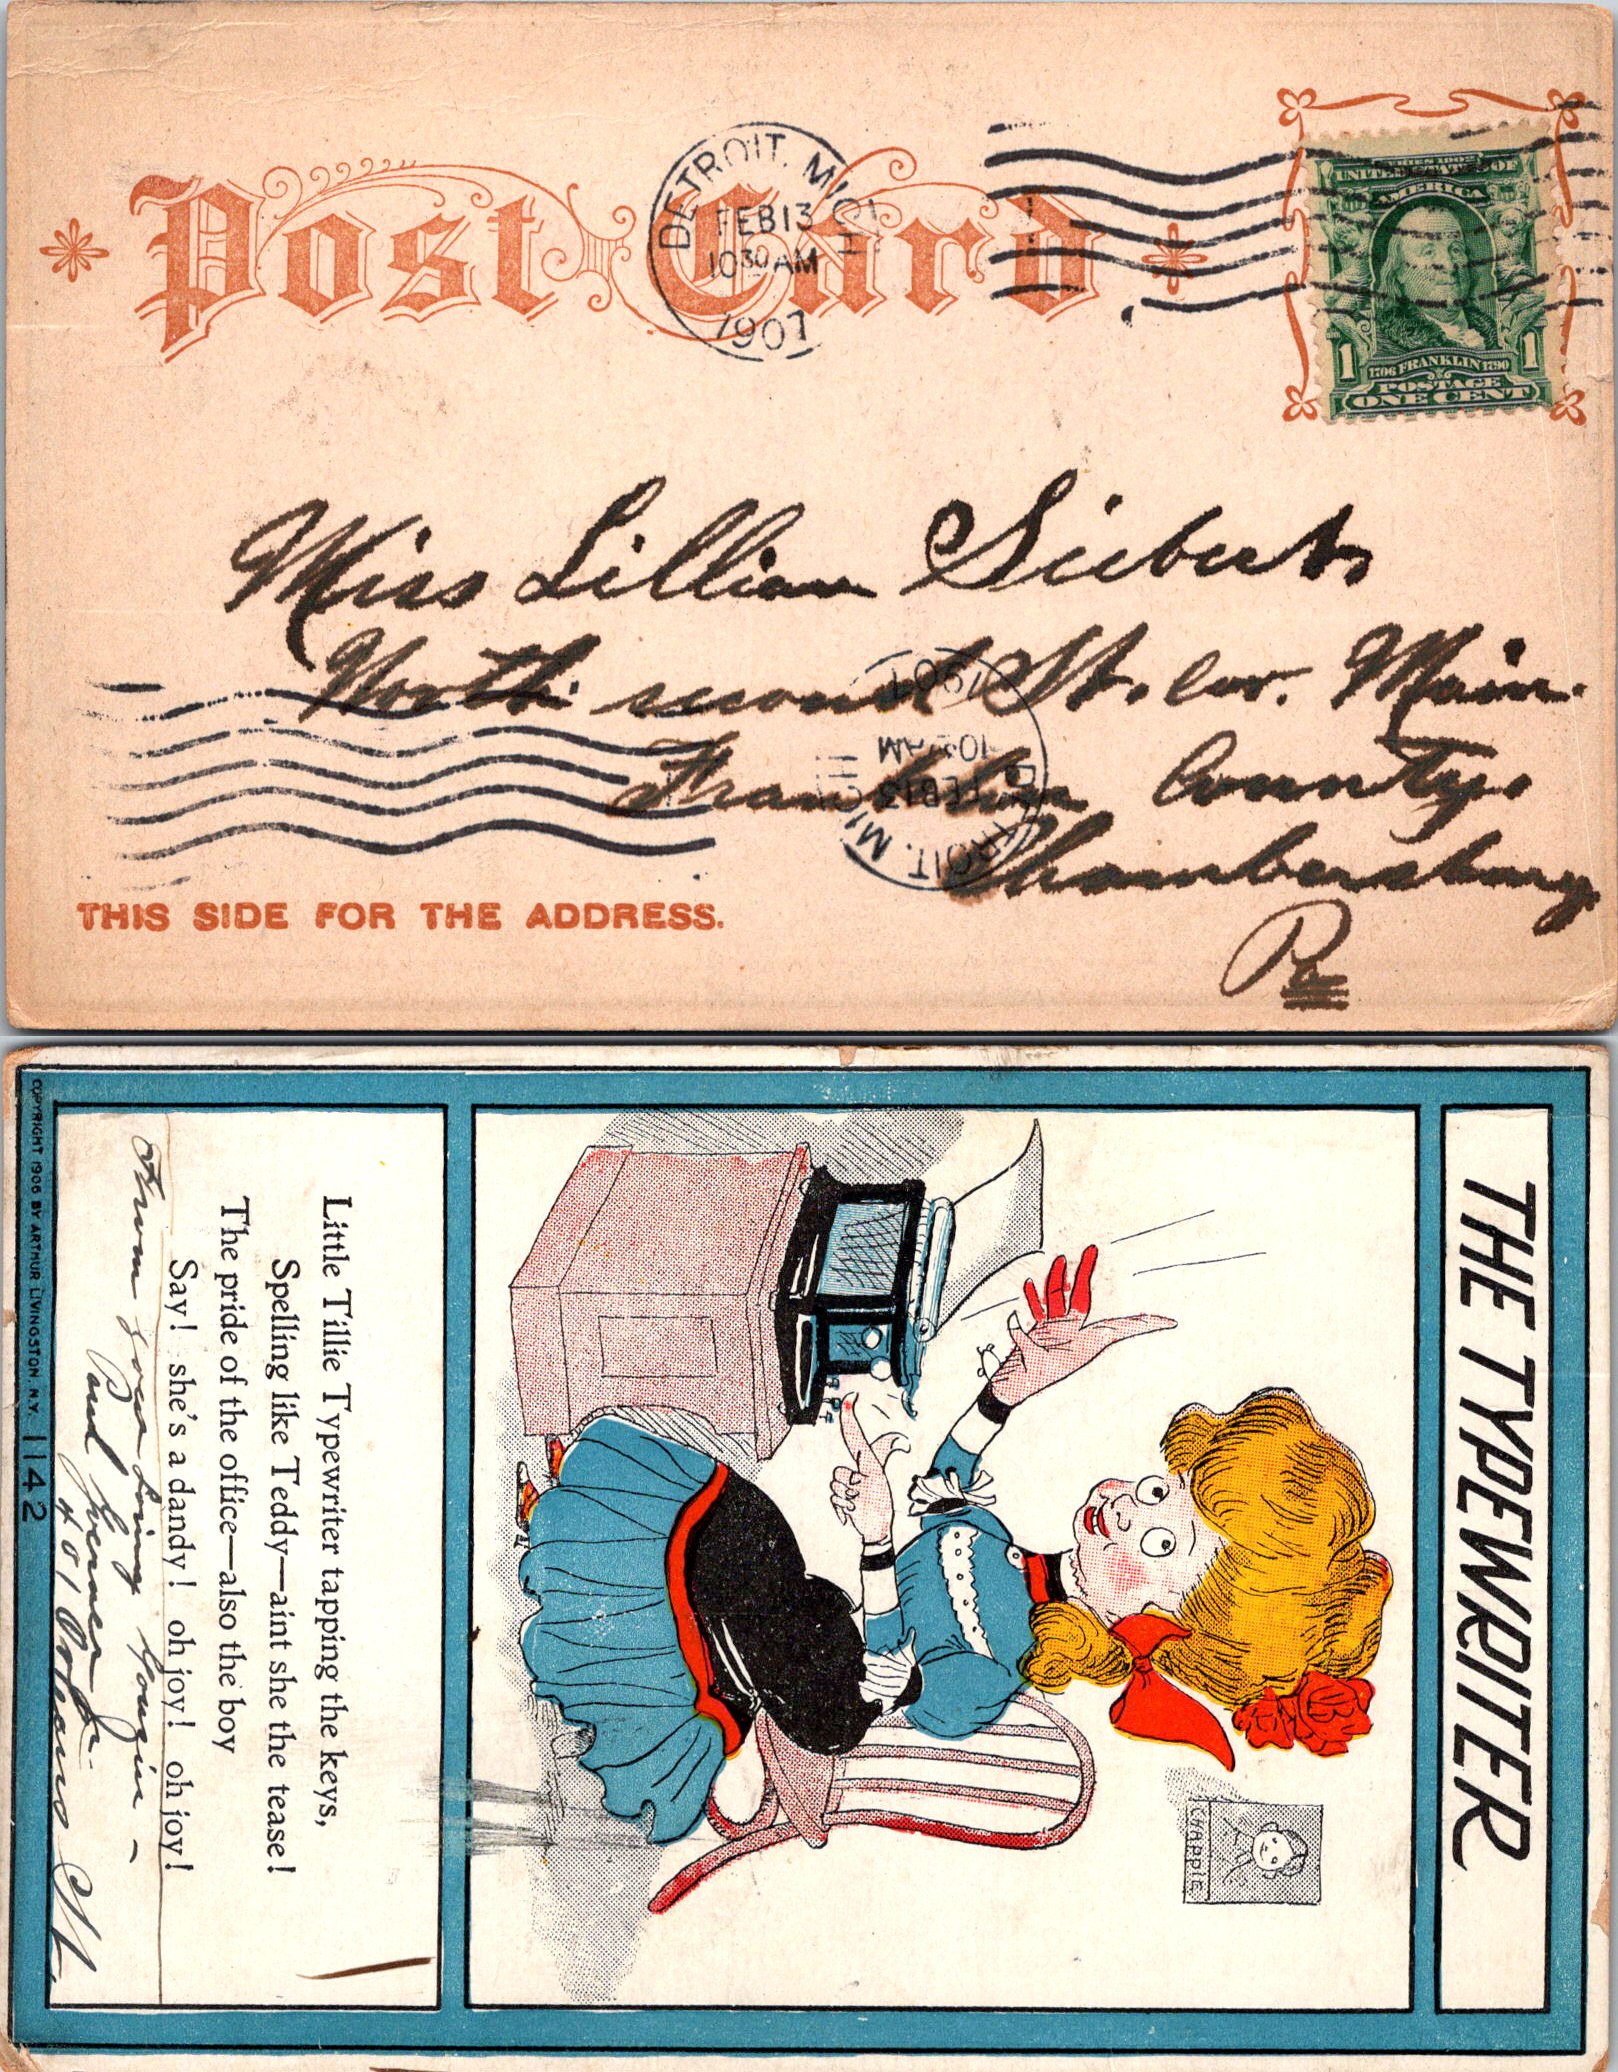 Post Card
DETROIT, MICH.
FEB 13
10 30 AM
1907
UNITED STATES OF
AMERICA
1 1
1706 FRANKLIN 1790
POSTAGE
ONE CENT
Miss Lillian Siebert,
North second St. Cor. Main.
Franklin County.
Chambersburg
Pa
DETROIT, MICH.
FEB 13
10 AM
1907
THIS SIDE FOR THE ADDRESS.
THE TYPEWRITER
CHAPPLE
Little Tillie Typewriter tapping the keys,
Spelling like Teddy—aint she the tease!
The pride of the office—also the boy
Say! she's a dandy! oh joy! oh joy!
From your Loving Cousin –
Paul
401 Orleans St.
COPYRIGHT 1906 BY ARTHUR LIVINGSTON, N.Y. 1142